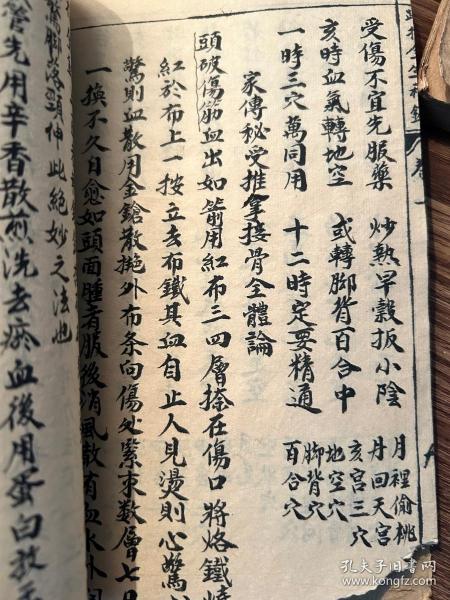 受傷不宜先服藥　炒熱早穀扳小陰　月裡偷桃
丹回天宮
亥時血氣轉地空　或轉脚背百合中　亥宮三穴
地空穴
一時三穴萬同用　十二時定要精通　脚背穴
百合穴
家傳秘受推拿接骨全體論
頭破傷筋血出如箭用紅布三四層捺在傷口將烙鐵燒
紅於布上一按立去布鐵其血自止人見燙則心驚
驚則血散用金鎗散拖外布条向傷处緊束数層七日
一換不久日愈如頭面腫者服後消風散有血水外
驚脚落頸伸此絕妙之法也
管先用辛香散煎洗去瘀血後用蛋白放
孔夫子旧书网
book.kongfz.com